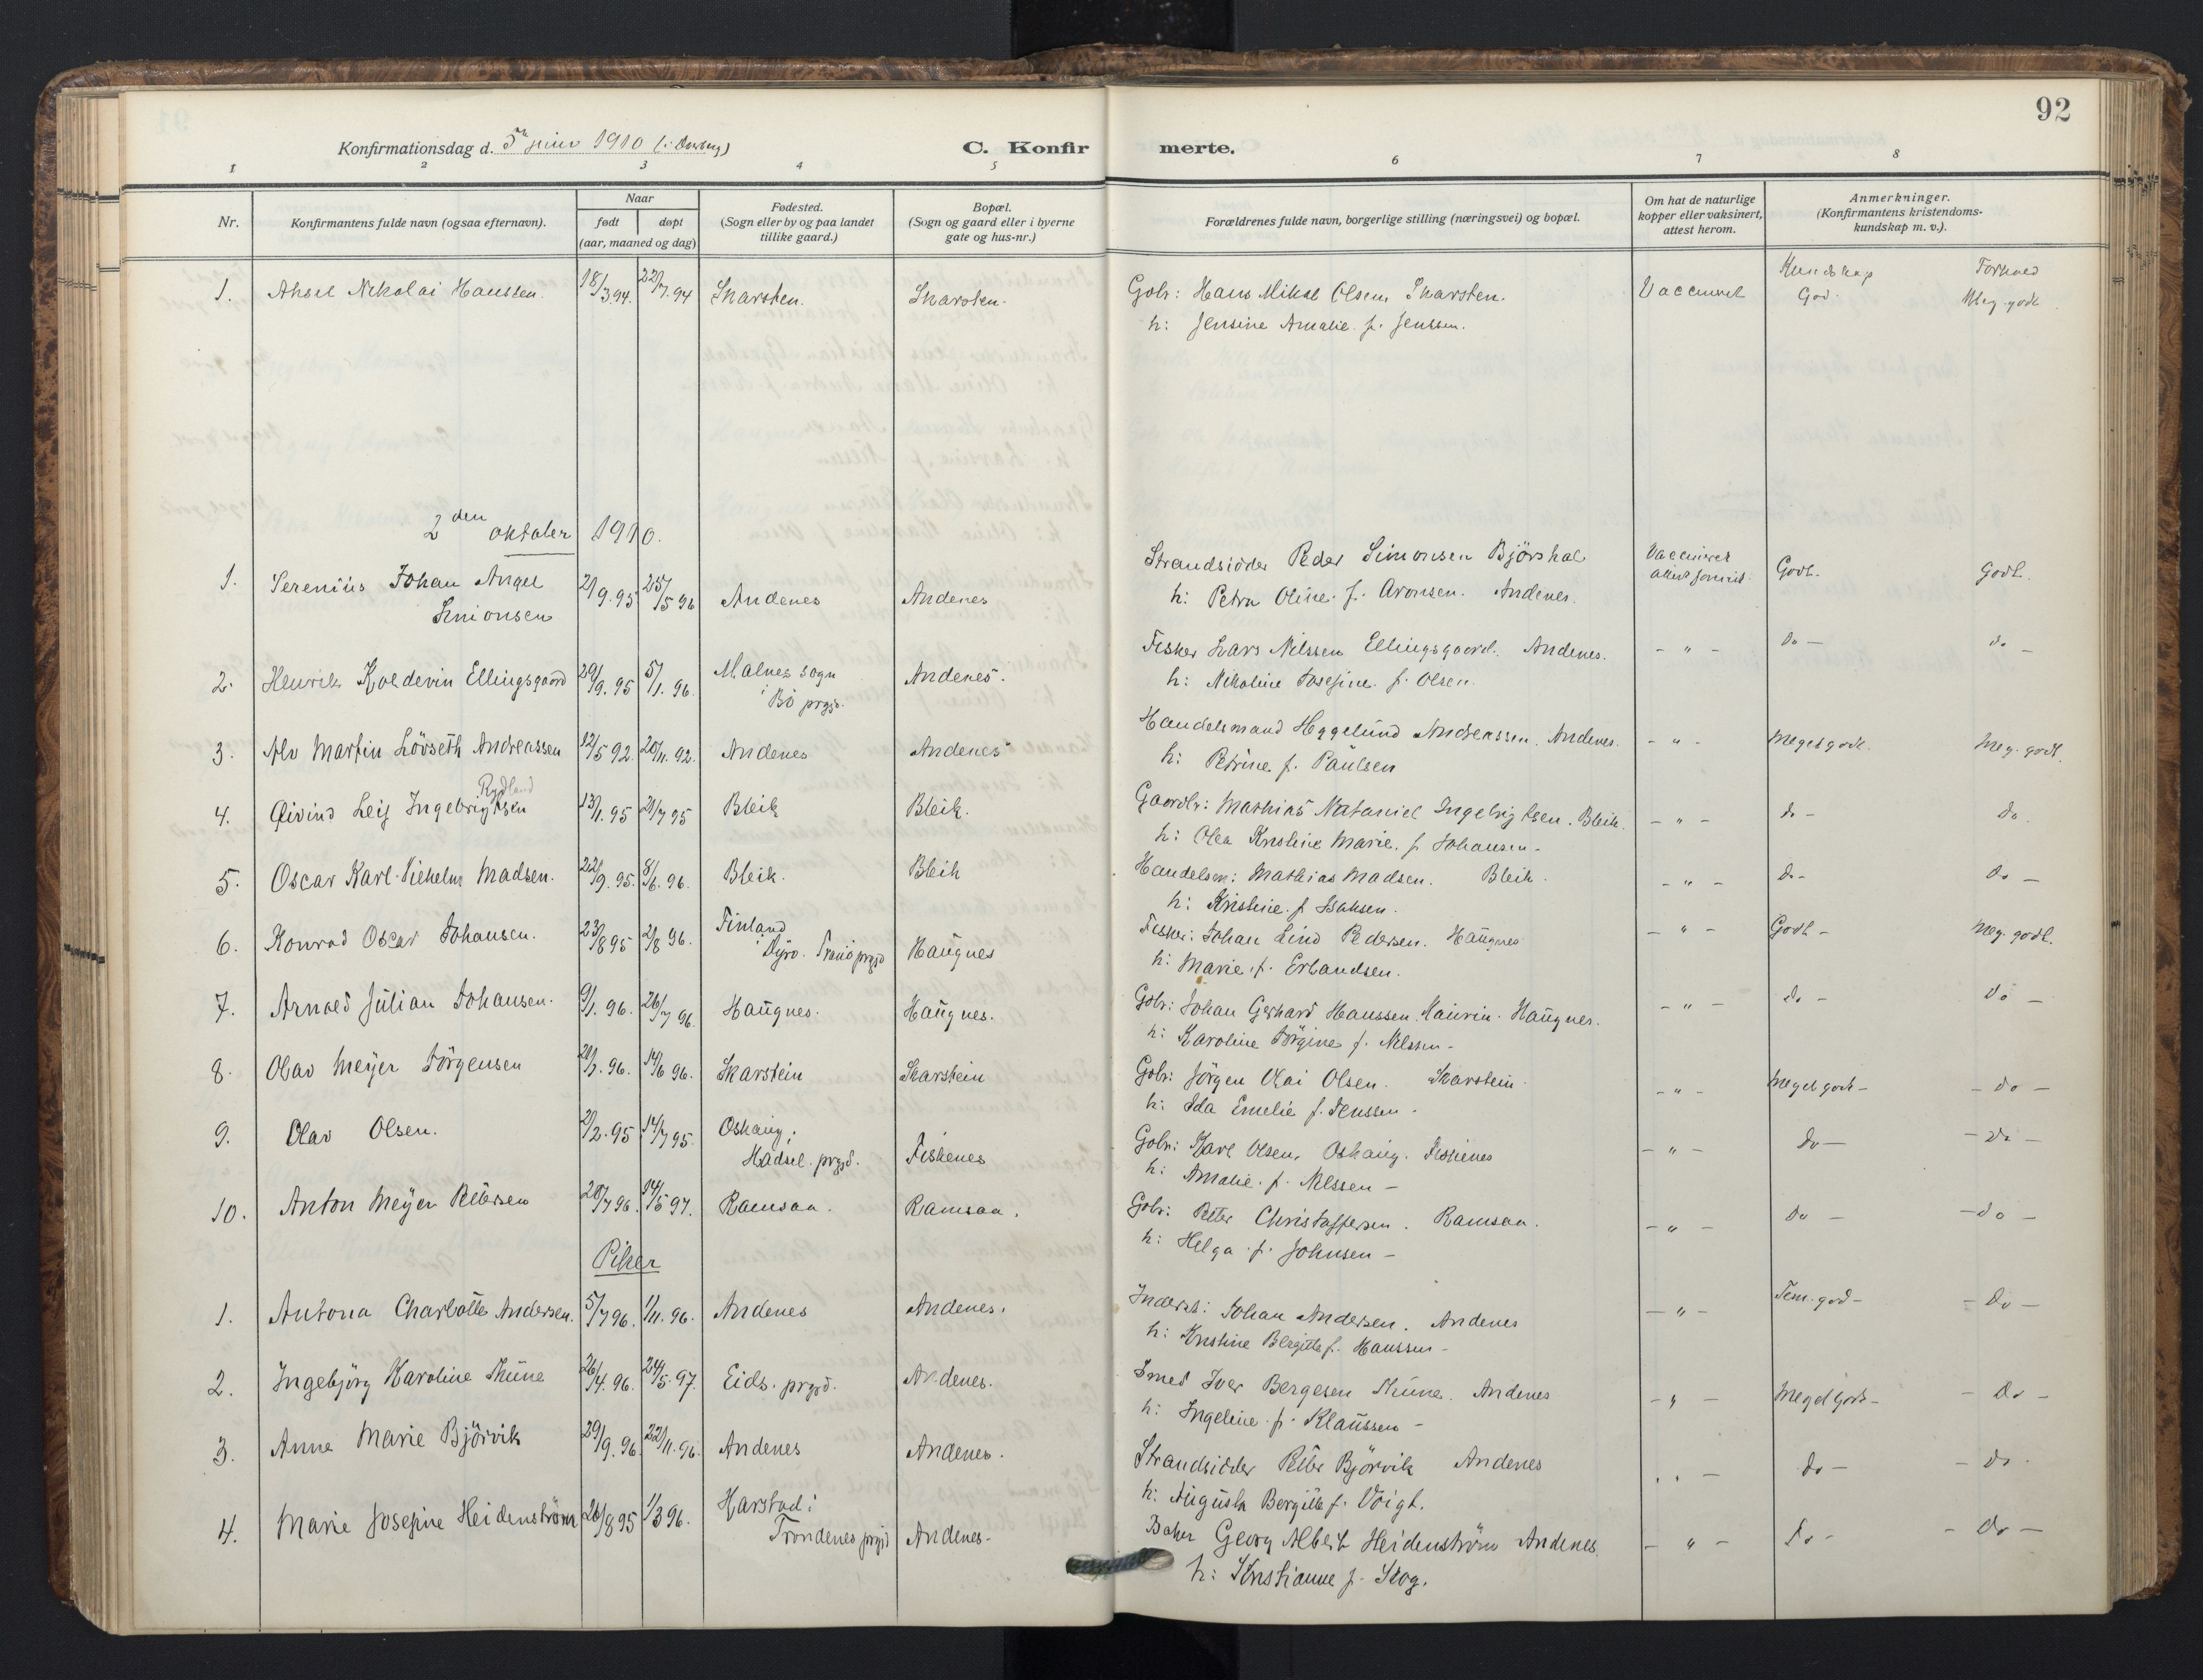 92
Konfirmationsdag d. 5te juni 1910
C. Konfirmerte.
1 2 3 4 5 6 7 8
Nr.
Konfirmantens fulde navn (ogsaa efternavn).
Naar
født
døpt
(aar, maaned og dag)
Fødested.
(Sogn eller by og paa landet
tillike gaard.)
Bopæl.
(Sogn og gaard eller i byerne
gate og hus-nr.)
Forældrenes fulde navn, borgerlige stilling (næringsvei) og bopæl.
Om hat de naturlige
kopper eller vaksinert,
attest herom.
Anmerkninger.
(Konfirmantens kristendoms-
kundskap m. v.).
Kundskap Forhold
1. Aksel Nikolai Hanssen. 18/3.94. 22/7.94 Skarsten. Skarsten. Gbr: Hans Mikal Olsen, Skarsten. Vaccineret God. Meg. godt
h: Jensine Amalie f. Jenssen.
2den oktober 1910.
1. Serenius Johan Angel 2/9.95 25/5 96 Andenes Andenes Strandsidder Peder Simonsen Vaccineret Godt. Godt.
Simonsen h: Petra Oline f. Aronsen. Andenes.
2. Henrik Koldevin Ellingsgaard 29/9.95 5/1.96. Malnes sogn Andenes. Fisker Lars Nilssen Ellingsgaard. Andenes. - " - do - do -
i Bö prgjd. h: Nikoline Josefine f. Olsen.
3. Alv Martin Lövseth Andreassen 12/5 92. 20/11.92. Andenes Andenes Handelsmand Hggelund Andreassen. Andenes. - " - Meget godt. Meg. godt.
h: Petrine f. Paulsen
Rydland
4. Øivind Leif Ingebrigtsen 13/1.95 21/7 95 Bleik Bleik. Gaardbr: Mathias Nataniel Ingebrigtsen. Bleik. - " - do - do.
h: Olea Kristine Marie f. Johansen -
5. Oscar Karl Vilhelm Madsen. 22/9.95. 8/6.96. Bleik. Bleik Handelsm: Mathias Madsen. Bleik. - " - do - do -
h: Kristine f. Isaksen.
6. Konrad Oscar Johansen. 23/8 95 2/8 96. Finland Haugnes Fisker: Johan Lind Pedersen. Haugnes - " - Godt - Meg. godt.
i Dyrö. Tranö prgjd h: Marie f. Erlandsen.
7. Arnold Julian Johansen. 9/1.96. 26/7 96. Haugnes. Haugnes. Gbr: Johan Gerhard Hanssen. Haugnes. - " - do - do -
h: Karoline Jörgine f. Nilssen -
8. Olav Meyer Jörgensen 21/3.96. 14/6 96. Skarstein Skarstein Gbr: Jörgen Olai Olsen. Skarstein. - " - Meget godt - - do -
h: Ida Emelie f. Jenssen -
9. Olav Olsen. 2/2.95 14/7 95. Oshaug i Fiskenes Gbr: Karl Olsen, Oshaug. Fiskenes - " - do - - do -
Hadsel. prgjd. h: Amalie f. Nilssen -
10. Anton Meyer Petersen 28/7 96. 14/5 97. Ramsaa. Ramsaa. Gbr: Petter Christoffersen. Ramsaa. - " - do - - do -
h: Helga f. Johnsen -
Piker
1. Antona Charlotte Andersen. 5/7 96. 1/11.96. Andenes Andenes. Inderst: Johan Andersen. Andenes - " - Tem. god - - do -
h: Kristine Birgitte f. Hanssen -
2. Ingebjörg Karoline Thune 26/4.96. 24/5.97. Eids. prgjd. Andenes. Smed Iver Bergesen Thune. Andenes - " - Meget godt - - do -
h: Ingeline f. Klaussen -
3. Anne Marie Björvik 29/9.96. 22/11.96. Andenes Andenes. Strandsidder Petter Björvik Andenes " - do - - do.
h: Augusta Bergitte f. Voigt.
4. Marie Josefine Heidenström 26/8 95 1/3 96. Harstad i Andenes - Baker Georg Albert Heidenström Andenes. - " - do - - do -
Trondenes prgjd h: Kristianne f. Skog.